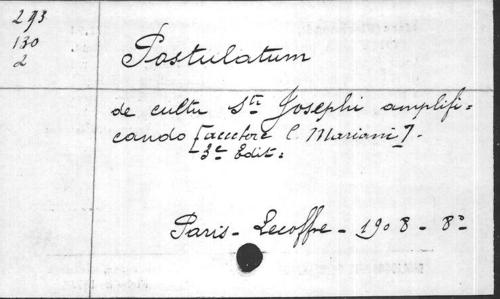 293
130
2
Postulatum
de cultu Sti Josephi amplifi=
cando [auctore C. Mariani].
3e Edit:
Paris - Lecoffre - 1908 - 8o